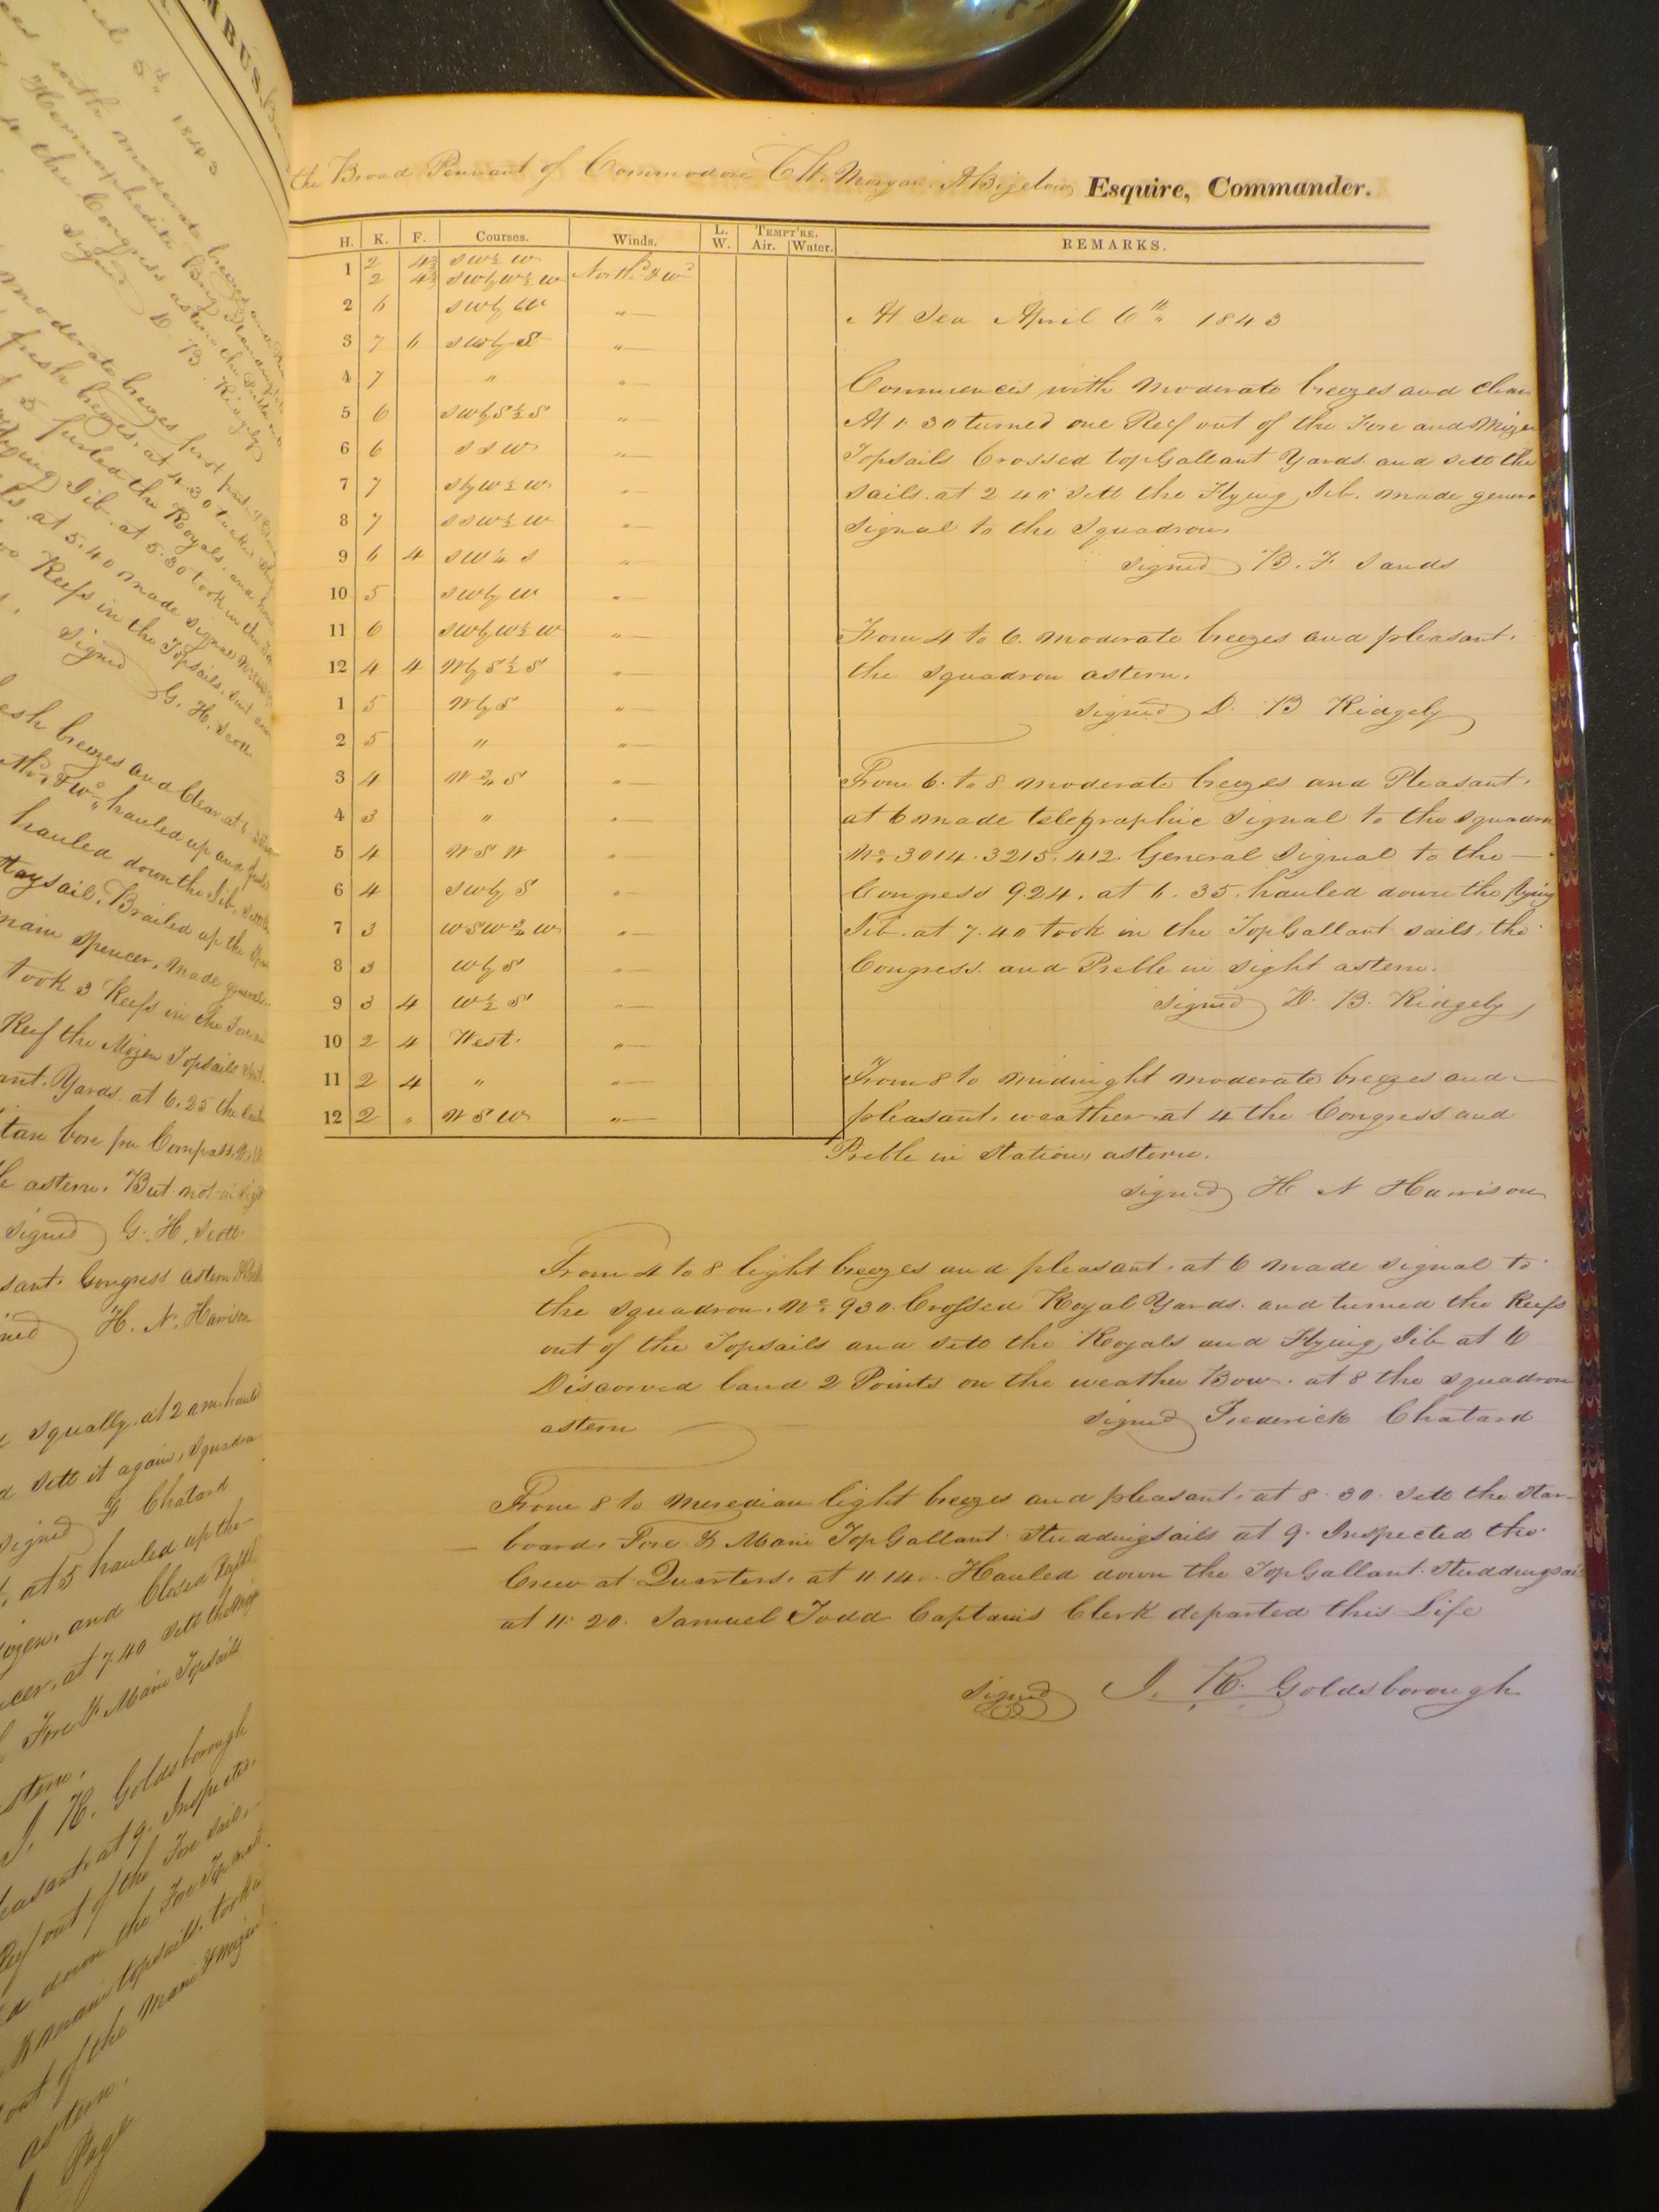 MBUS,
5th 1843
with moderate breezes and
Hermaphrodite Brig
the Congress astern the Preble
Signed D. B. Ridgely
moderate breezes first part
fresh breezes, at 4.30
furled the Royals, and
Flying Jib. at 5.30 took in the
at 5.40 made signal
Reefs in the Topsails,
Signed G. H. Scott
esh breezes and Clear at 6
hauled up and
hauled down the Jib,
Staysail, Brailed up the
main Spencer, made general
took 3 Reefs in the Fore
Reef the Mizen Topsails
ant. Yards. at 6.25 the
tan bore per Compass.
astern. But not in sight
Signed G. H. Scott
sant. Congress astern
ned H. N. Harrison
squally. at 2 am
sett it again, Squadron
signed F Chatard
at 5 hauled up the
izen, and Closed
cer, at 7.40 sett the
Fore & Main Topsails
stern.
J. R. Goldsborough
leasant at 9. Inspected
Reef out of the Fore sail,
down the Fore Top
& main topsails, took
out of the Main & Mizen
astern.
Page
the Broad Pennant of Commodore C. W. Morgan. A Bigelow Esquire, Commander.
H. K. F. Courses. Winds. L. W. TEMPT'RE. Air. Water. REMARKS.
1 2 4½ S W ½ W
2 4½ S W by W ½ W North'd & W'd
2 6 S W by W "
3 7 6 S W by S "
4 7 " "
5 6 S W by S ½ S "
6 6 S S W "
7 7 S by W ½ W "
8 7 S S W ½ W "
9 6 4 S W ¼ S "
10 5 S W by W "
11 6 S W by W ½ W "
12 4 4 W by S ½ S "
1 5 W by S "
2 5 " "
3 4 W ¾ S "
4 3 " "
5 4 W S W "
6 4 S W by S "
7 3 W S W ¾ W "
8 3 W by S "
9 3 4 W ½ S "
10 2 4 West. "
11 2 4 " "
12 2 " W S W "
At Sea April 6th 1843
Commences with moderate breezes and clear
At 1.30 turned one Reef out of the Fore and Mizen
Topsails Crossed topGallant Yards and sett the
sails. at 2 40 sett the Flying Jib. made general
signal to the Squadron.
signed B. F Sands
From 4 to 6. moderate breezes and pleasant.
the Squadron astern.
signed D. B Ridgely
From 6. to 8 moderate breezes and Pleasant.
at 6 made telegraphic Signal to the Squadron
No. 3014. 3215. 412. General Signal to the
Congress 924. at 6. 35. hauled down the flying
Jib. at 7. 40 took in the TopGallant sails, the
Congress. and Preble in sight astern.
signed D. B. Ridgely
From 8 to midnight moderate breezes and
pleasant. weather at 4 the Congress and
Preble in Station, astern.
signed H N Harrison
From 4 to 8 light breezes and pleasant. at 6 made signal to
the Squadron. No. 930. Crossed Royal Yards. and turned the Reefs
out of the Topsails and sett the Royals and Flying Jib at 6
Discovered land 2 Points on the weather Bow. at 8 the squadron
astern signed Frederick Chatard
From 8 to Meredian light breezes and pleasant. at 8. 30. sett the star-
board. Fore & Main TopGallant Studdingsails at 9. Inspected the
Crew at Quarters. at 11.14. Hauled down the TopGallant Studdingsails
at 11. 20. Samuel Todd Captains Clerk departed this Life
signed J. R. Goldsborough